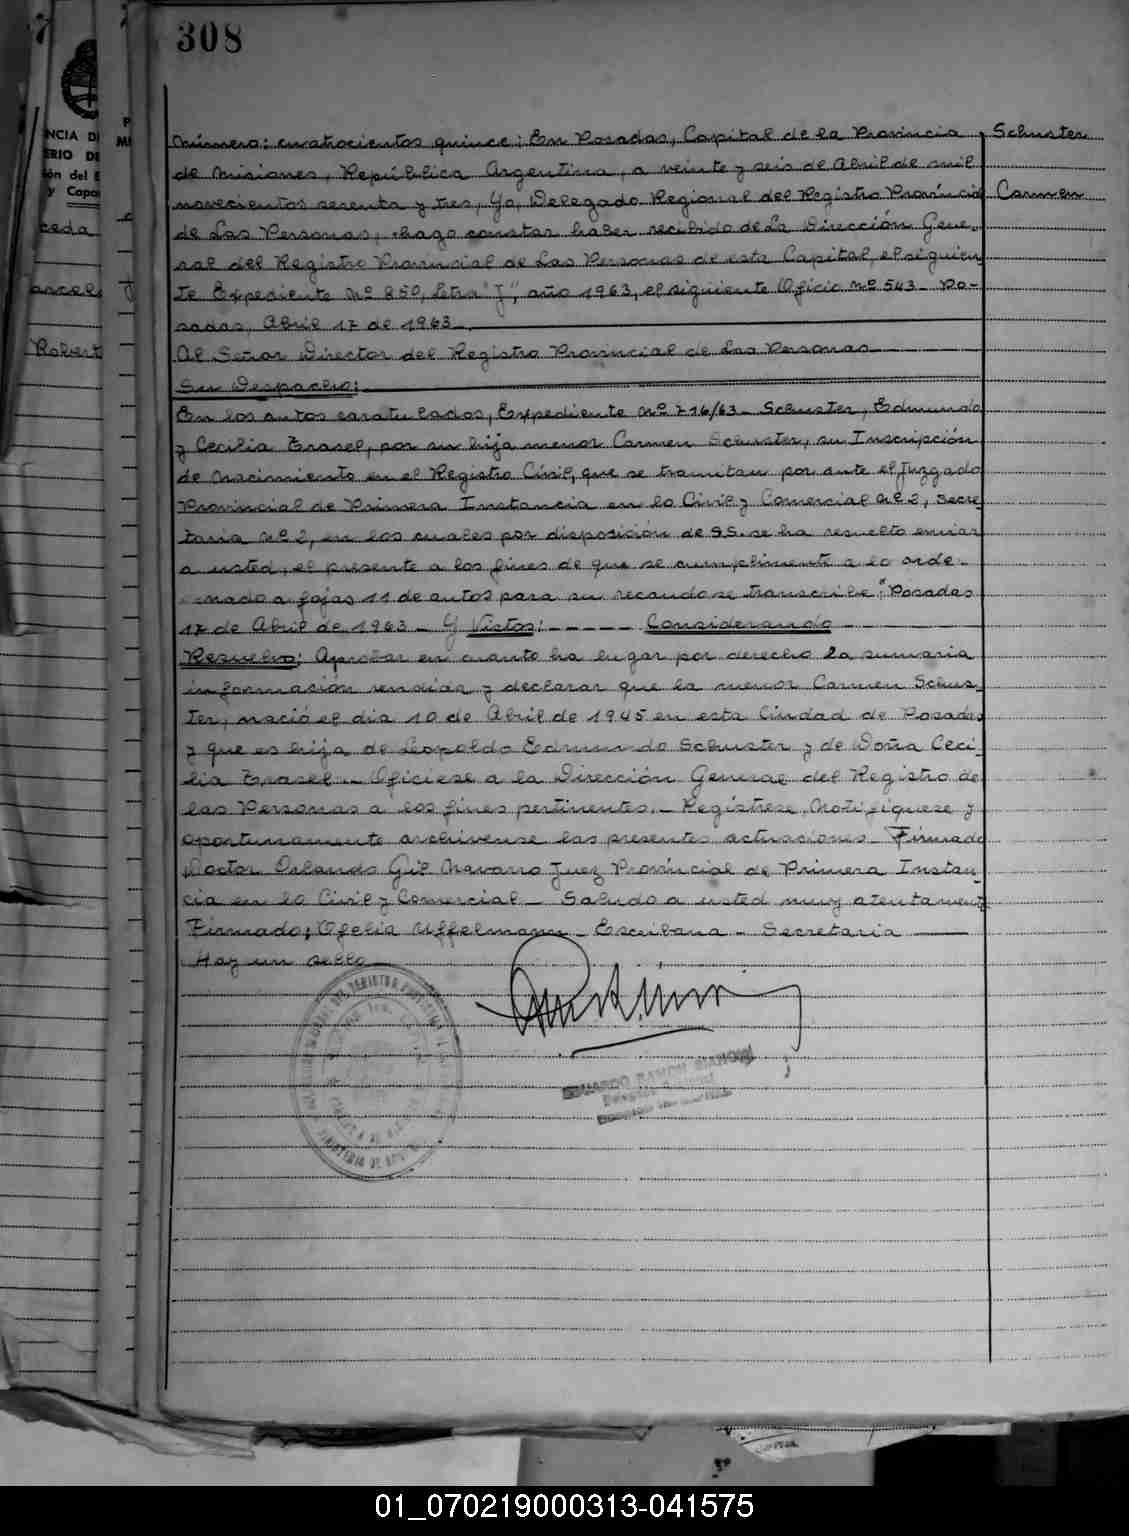 308
Número: cuatrocientos quince: En Posadas, Capital de la Provincia
de Misiones, República Argentina, a veinte y seis de Abril de mil
novecientos sesenta y tres, Yo, Delegado Regional del Registro Provincial
de Las Personas, hago constar haber recibido de La Dirección Gene-
ral del Registro Provincial de Las Personas de esta Capital, el siguien
te Expediente Nº 850, letra "J", año 1963, el siguiente Oficio Nº 543 - Po-
sadas, Abril 17 de 1963 -
Al Señor Director del Registro Provincial de Las Personas
Su Despacho:
En los autos caratulados, Expediente Nº 716/63 - Schuster, Edmundo
y Cecilia Trasel, por su hija menor Carmen Schuster, su Inscripción
de Nacimiento en el Registro Civil, que se tramitan por ante el Juzgado
Provincial de Primera Instancia en lo Civil y Comercial Nº 2, Secre
taria Nº 2, en los cuales por disposición de SS. se ha resuelto enviar
a usted, el presente a los fines de que se cumplimente a lo orde-
nado a fojas 11 de autos para su recaudo se transcribe: "Posadas
17 de Abril de 1963 - Y Vistos: - - - - - Considerando
Resuelvo: Aprobar en cuanto ha lugar por derecho la sumaria
información rendida y declarar que la menor Carmen Schus-
ter, nació el dia 10 de Abril de 1945 en esta Ciudad de Posadas
y que es hija de Leopoldo Edmundo Schuster y de Doña Ceci-
lia Trasel - Ofíciese a la Dirección General del Registro de
las Personas a los fines pertinentes. - Regístrese, Notifíquese y
oportunamente archívense las presentes actuaciones - Firmado
Doctor Orlando Gil Navarro Juez Provincial de Primera Instan-
cia en lo Civil y Comercial - Saludo a usted muy atentamente
Firmado: Ofelia Uffelmann - Escribana - Secretaria
Hay un sello
Schuster
Carmen
RAMON
Delegado Regional
NCIA D
ERIO DE
ceda
Robert
01_070219000313-041575